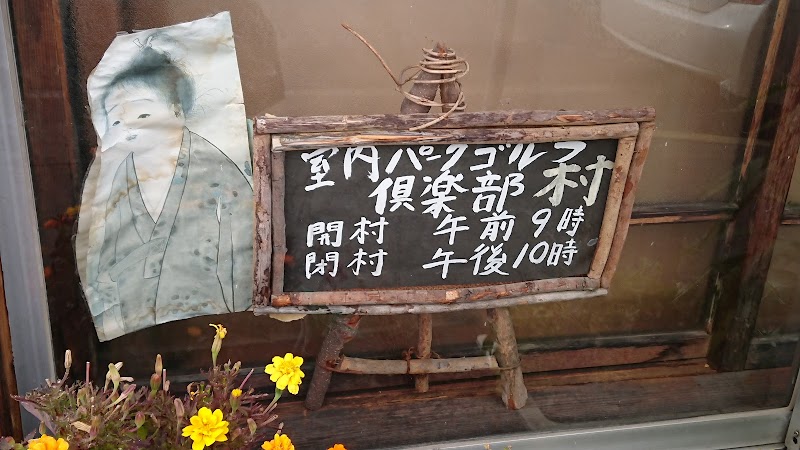 室内パークゴルフ
倶楽部 村
開村 午前9時
閉村 午後10時